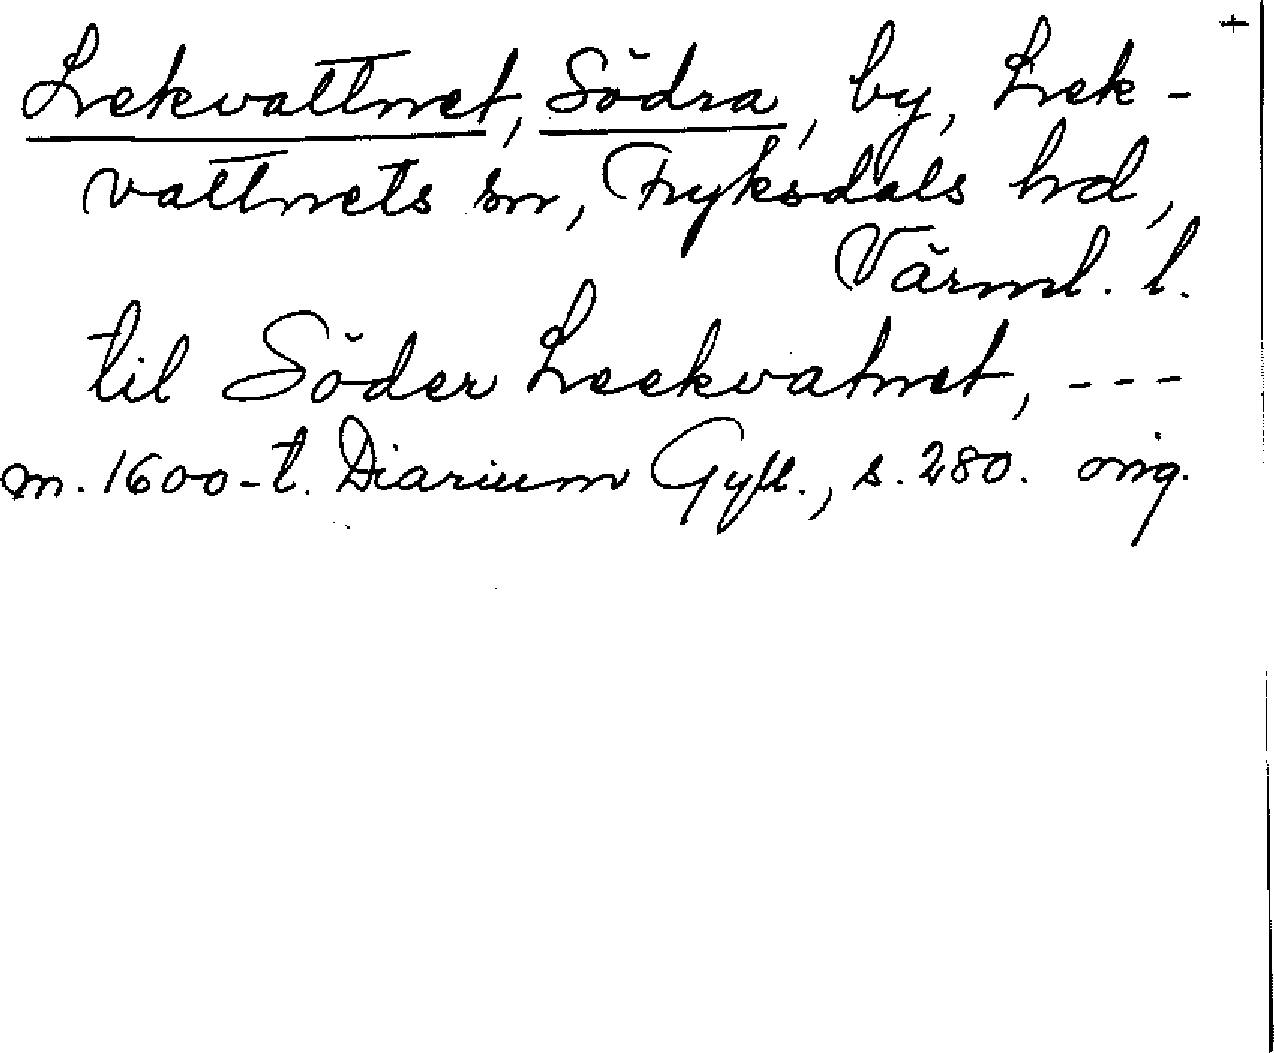 +
Lekvattnet, Södra, by, Lek-
vattnets sn, Fryksdals hd,
Värml. l.
til Söder Leekvatnet, ---
m. 1600-t. Diarium Gyll., s. 280. orig.